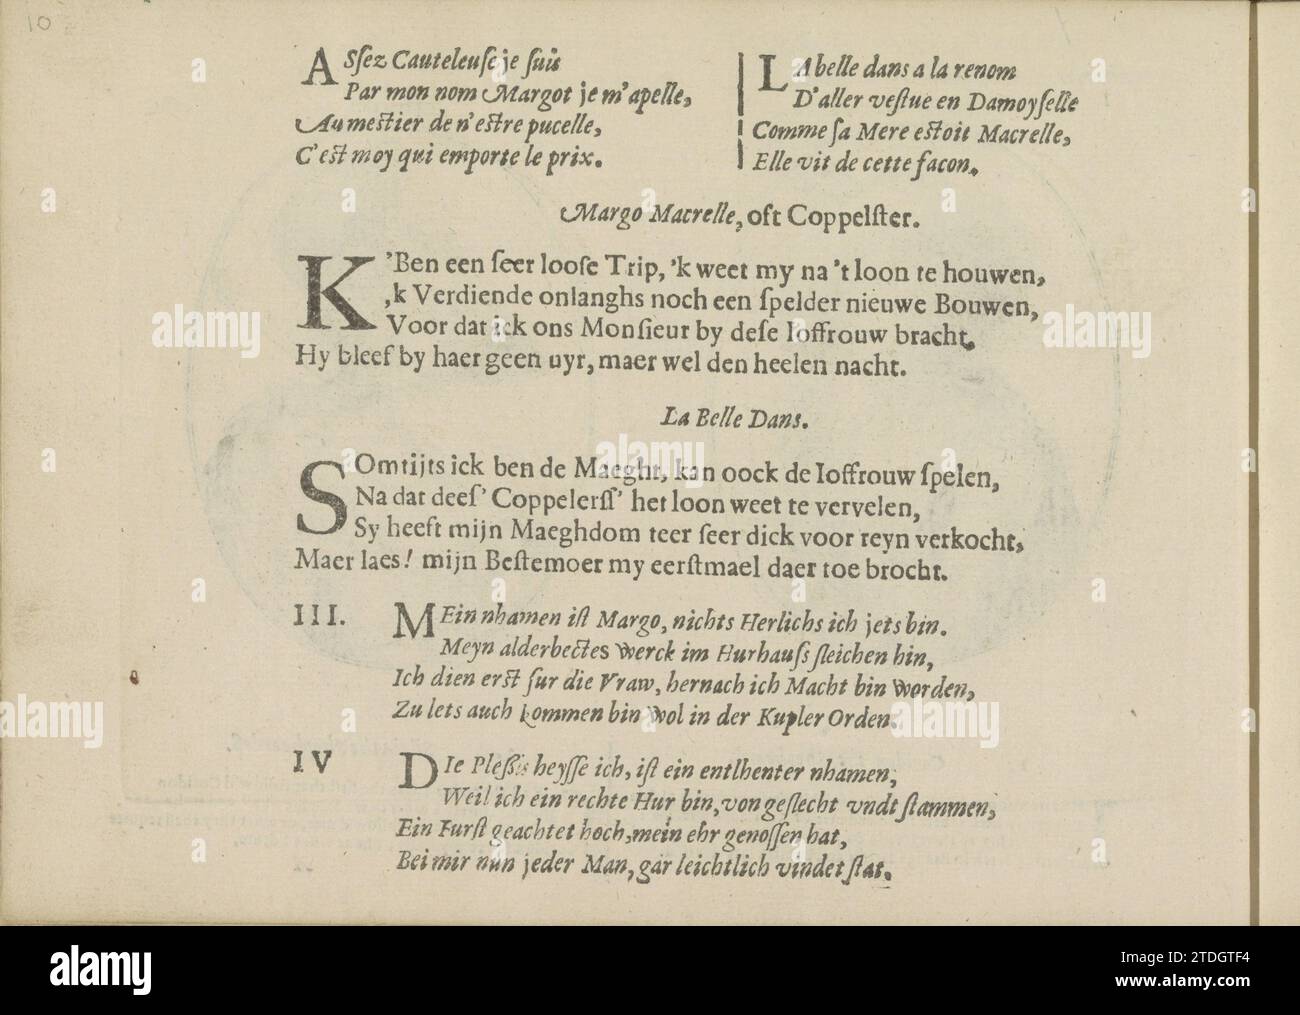 10
ASſez Cauteleuſe je ſuis
Par mon nom Margot je m'apelle,
Au mestier de n'estre pucelle,
C'est moy qui emporte le prix.
LA belle dans a la renom
D'aller veſtue en Damoyſelle
Comme ſa Mere eſtoit Macrelle,
Elle vit de cette facon.
Margo Macrelle, oft Coppelſter.
K'Ben een ſeer looſe Trip, 'k weet my na 't loon te houwen,
,k Verdiende onlanghs noch een ſpelder nieuwe Bouwen,
Voor dat ick ons Monſieur by deſe Ioffrouw bracht,
Hy bleef by haer geen uyr, maer wel den heelen nacht.
La Belle Dans.
SOmtijts ick ben de Maeght, kan oock de Ioffrouw ſpelen,
Na dat deeſ' Coppelerſſ' het loon weet te vervelen,
Sy heeft mijn Maeghdom teer ſeer dick voor reyn verkocht,
Maer laes! mijn Beſtemoer my eerſtmael daer toe brocht.
III. MEin nhamen iſt Margo, nichts Herlichs ich jets bin.
Meyn alderbectes werck im Hurhauſs ſleichen hin,
Ich dien erst ſur die Vraw, hernach ich Macht bin worden,
Zu lets auch kommen bin wol in der Kupler Orden.
IV DIe Pleſſis heyſſe ich, iſt ein entlhenter nhamen,
Weil ich ein rechte Hur bin, von geſlecht vndt ſtammen,
Ein Furſt geachtet hoch, mein ehr genoſſen hat,
Bei mir nun jeder Man, gar leichtlich vindet ſtat.
alamy
Image ID: 2TDGTF4
www.alamy.com